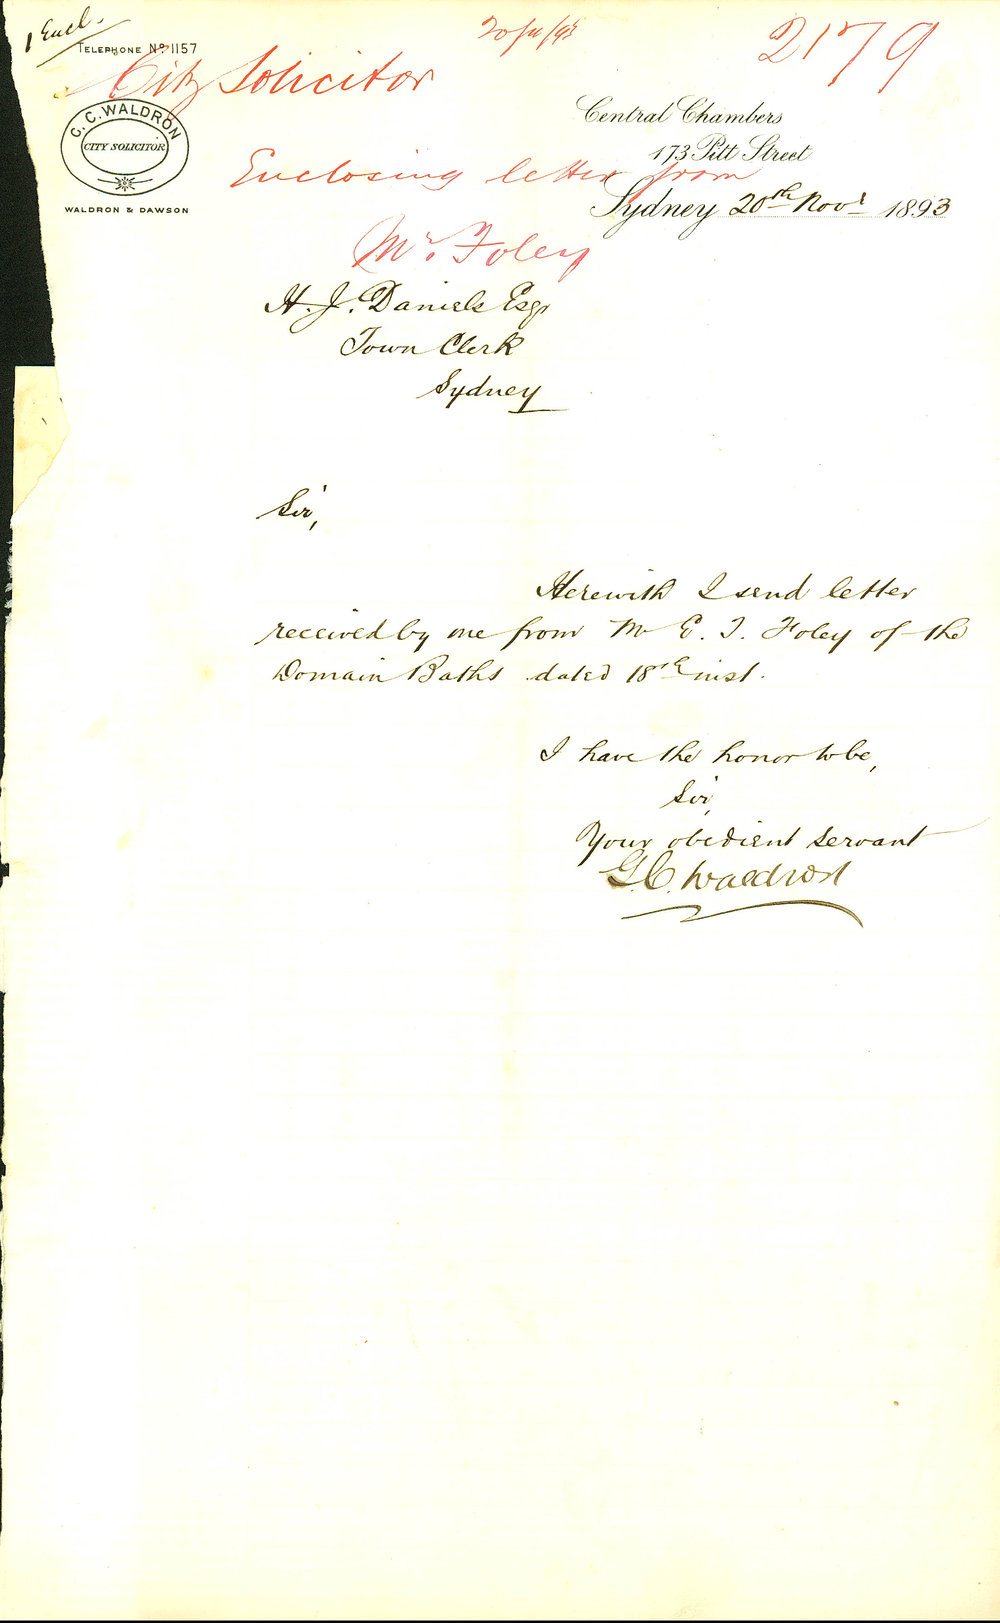 1 Encl.
20/11/93
2179
TELEPHONE No. 1157
City Solicitor
C. C. WALDRON
CITY SOLICITOR
WALDRON & DAWSON
Central Chambers
173 Pitt Street
Enclosing letter from
Sydney 20th Novr 1893
Mr. Foley
H. J. Daniels Esqr
Town Clerk
Sydney
Sir,
Herewith I send letter
received by me from Mr E. T. Foley of the
Domain Baths dated 18th inst.
I have the honor to be,
Sir,
Your obedient servant
G. C. Waldron